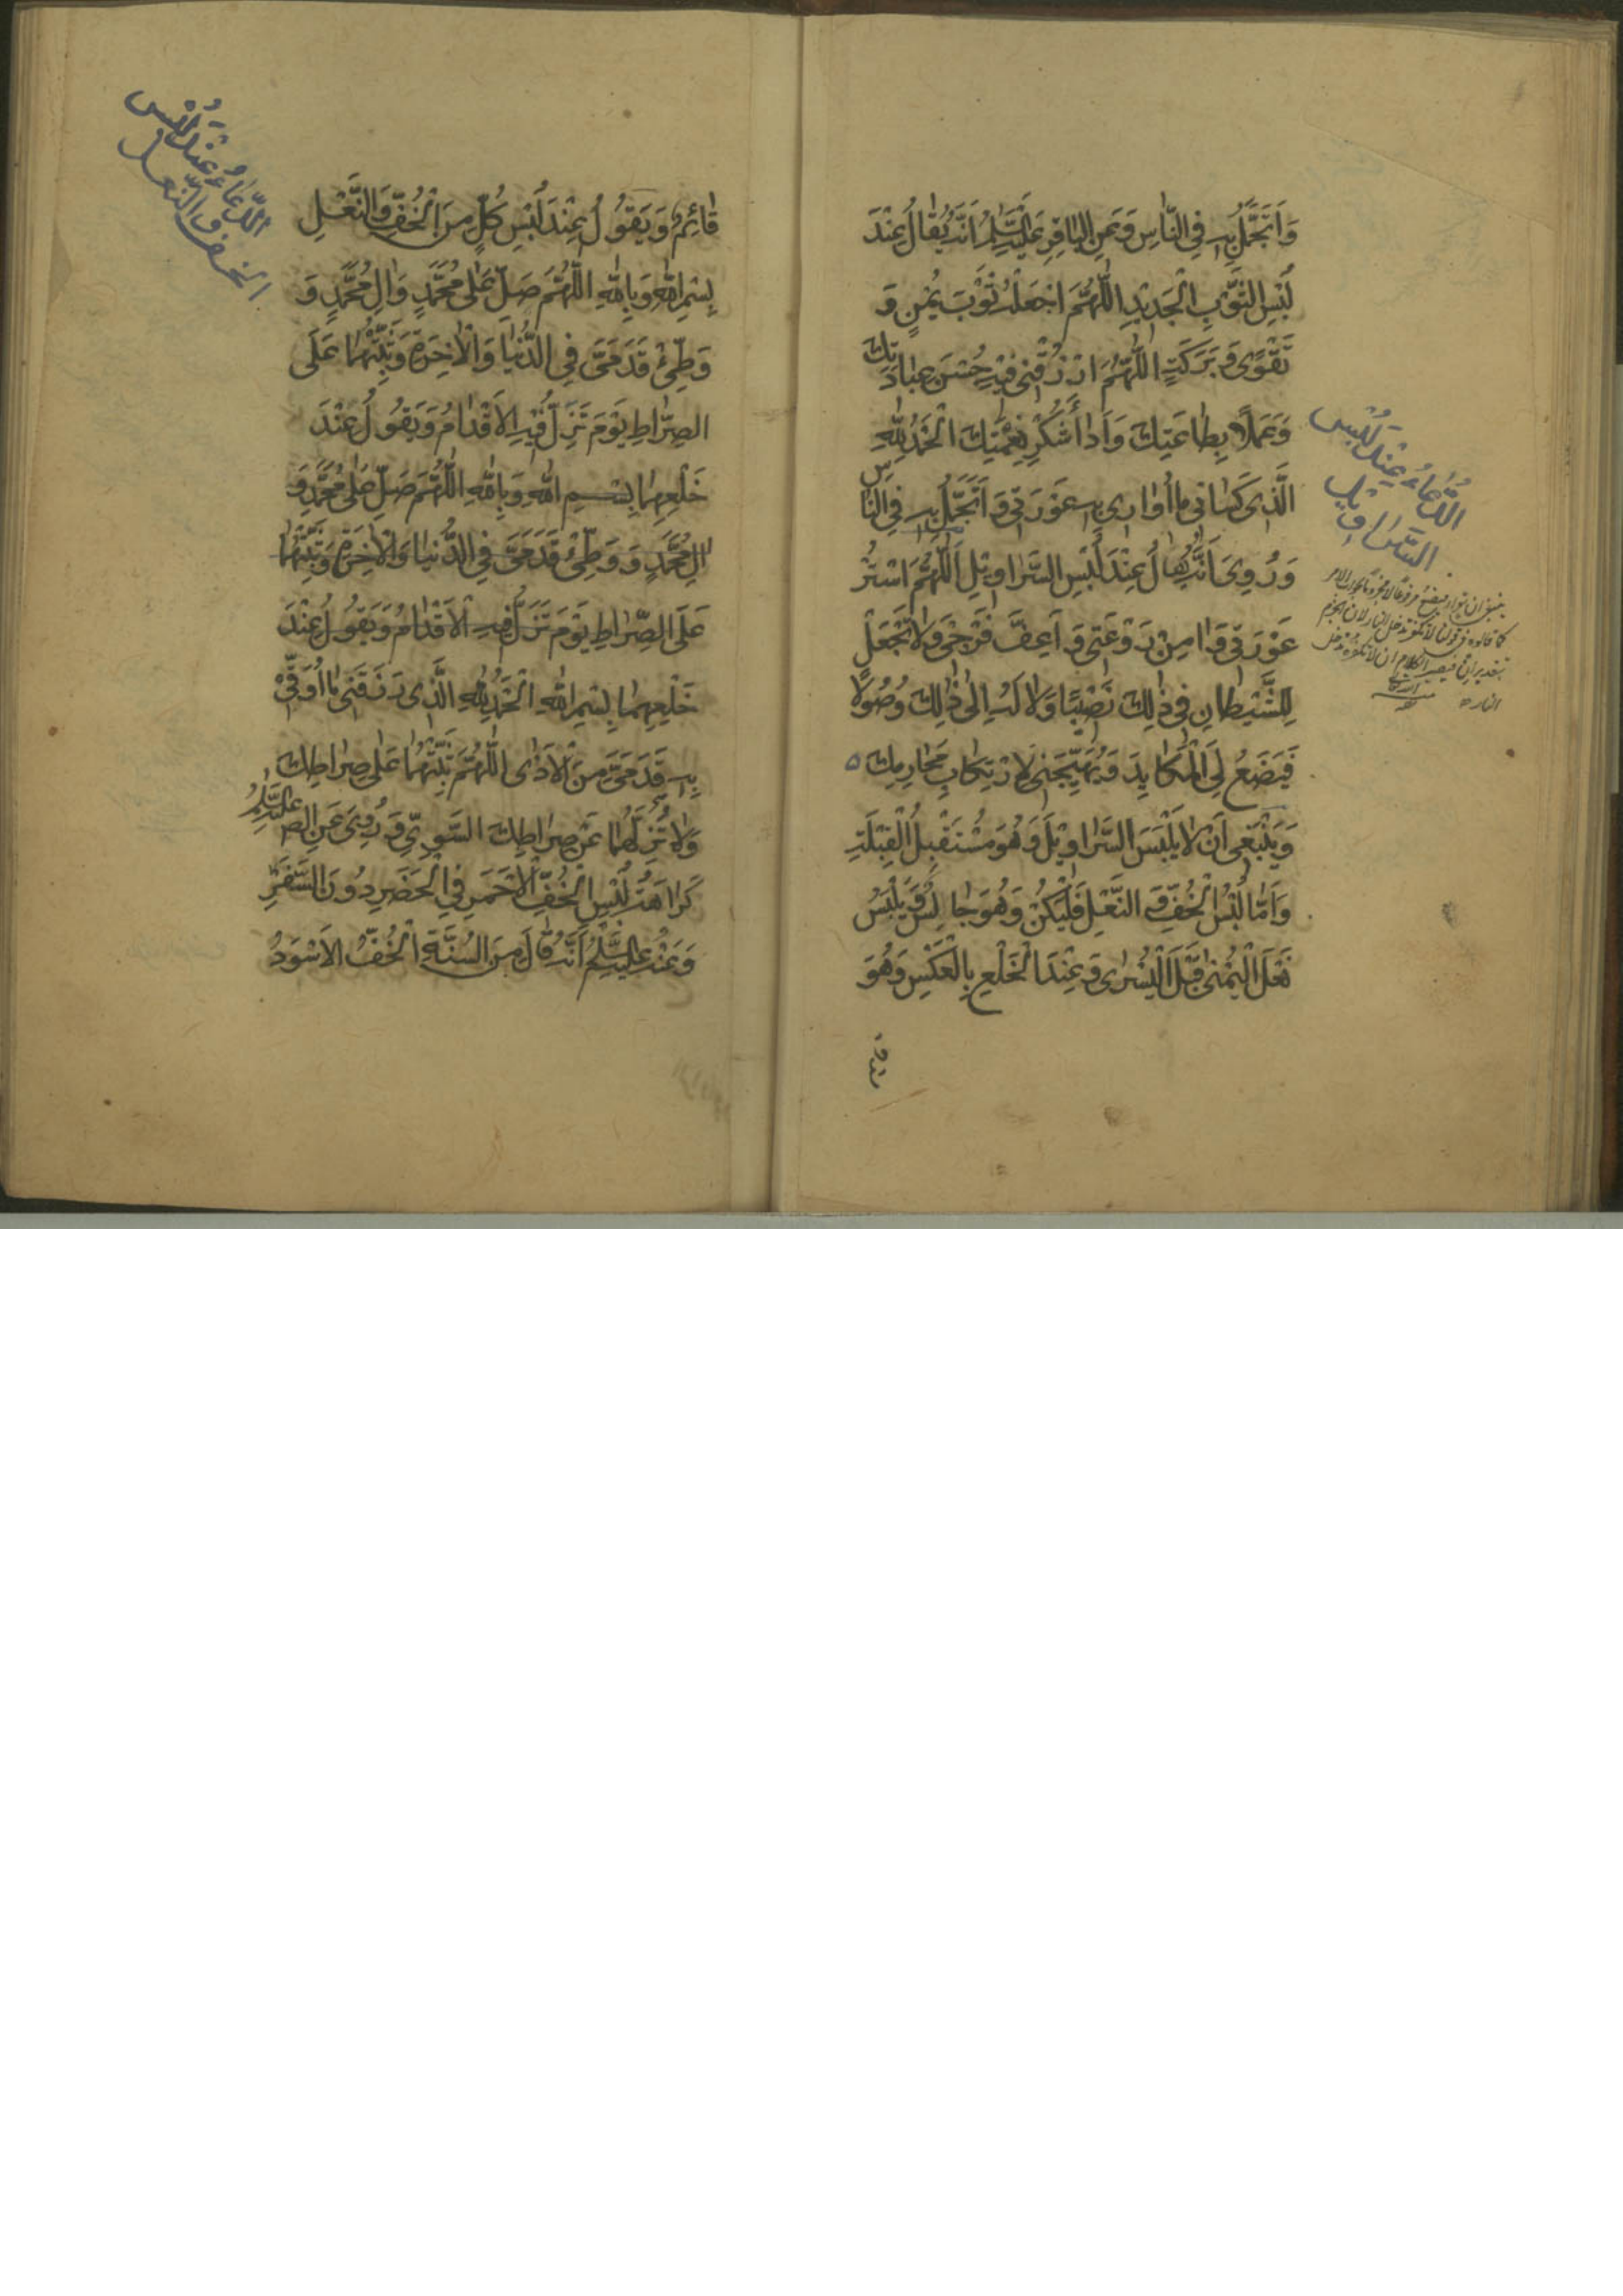 وَاَتَجَمَّلُ بِهِ فِي النَّاسِ وَعَنِ الْبَاقِرِ عَلَيْهِ السَّلَامُ اَنَّهُ يُقَالُ عِنْدَ
لُبْسِ الثَّوْبِ الْجَدِيْدِ اَللّٰهُمَّ اجْعَلْهُ ثَوْبَ يُمْنٍ وَ
تَقْوًى وَبَرَكَةٍ اَللّٰهُمَّ ارْزُقْنِي فِيْهِ حُسْنَ عِبَادَتِكَ
وَعَمَلًا بِطَاعَتِكَ وَاَدَاءَ شُكْرِ نِعْمَتِكَ اَلْحَمْدُ لِلّٰهِ
الَّذِي كَسَانِي مَا اُوَارِي بِهِ عَوْرَتِي وَاَتَجَمَّلُ بِهِ فِي النَّاسِ
وَرُوِيَ اَنَّهُ يُقَالُ عِنْدَ لُبْسِ السَّرَاوِيْلِ اَللّٰهُمَّ اسْتُرْ
عَوْرَتِي وَاٰمِنْ رَوْعَتِي وَاَعِفَّ فَرْجِي وَلَا تَجْعَلْ
لِلشَّيْطَانِ فِي ذٰلِكَ نَصِيْبًا وَلَا لَهُ اِلٰى ذٰلِكَ وُصُوْلًا
فَيَضَعُ لِيَ الْمَكَايِدَ وَيُهَيِّجُنِي لِارْتِكَابِ مَحَارِمِكَ ه
وَيَنْبَغِي اَنْ لَا يَلْبَسَ السَّرَاوِيْلَ وَهُوَ مُسْتَقْبِلُ الْقِبْلَةِ
وَاَمَّا لُبْسُ الْخُفِّ وَ النَّعْلِ فَلْيَكُنْ وَهُوَ جَالِسٌ وَيَلْبَسُ
نَعْلَ الْيُمْنٰى قَبْلَ الْيُسْرٰى وَعِنْدَ الْخَلْعِ بِالْعَكْسِ وَهُوَ
اَلدُّعَاءُ عِنْدَ لُبْسِ
السَّرَاوِيْل
قَائِمٌ وَيَقُوْلُ عِنْدَ لُبْسِ كُلٍّ مِنَ الْخُفِّ وَالنَّعْلِ
بِسْمِ اللهِ وَبِاللهِ اَللّٰهُمَّ صَلِّ عَلٰى مُحَمَّدٍ وَاٰلِ مُحَمَّدٍ وَ
وَطِّئْ قَدَمَيَّ فِي الدُّنْيَا وَالْاٰخِرَةِ وَثَبِّتْهُمَا عَلَى
الصِّرَاطِ يَوْمَ تَزِلُّ فِيْهِ الْاَقْدَامُ وَيَقُوْلُ عِنْدَ
خَلْعِهِمَا بِسْمِ اللهِ وَبِاللهِ اَللّٰهُمَّ صَلِّ عَلٰى مُحَمَّدٍ وَ
اٰلِ مُحَمَّدٍ وَ وَطِّئْ قَدَمَيَّ فِي الدُّنْيَا وَالْاٰخِرَةِ وَثَبِّتْهُمَا
عَلَى الصِّرَاطِ يَوْمَ تَزِلُّ فِيْهِ الْاَقْدَامُ وَيَقُوْلُ عِنْدَ
خَلْعِهِمَا بِسْمِ اللهِ اَلْحَمْدُ لِلّٰهِ الَّذِي رَزَقَنِي مَا اُوَقِّيْ
بِهِ قَدَمَيَّ مِنَ الْاَذٰى اَللّٰهُمَّ ثَبِّتْهُمَا عَلٰى صِرَاطِكَ
وَلَا تُزِلَّهُمَا عَنْ صِرَاطِكَ السَّوِيِّ وَرُوِيَ عَنِ الص عَلَيْهِ السَّلَامُ
كَرَاهَةُ لُبْسِ الْخُفِّ الْاَحْمَرِ فِي الْحَضَرِ دُوْنَ السَّفَرِ
وَعَنْهُ عَلَيْهِ السَّلَامُ اَنَّهُ قَالَ مِنَ السُّنَّةِ اَلْخُفُّ الْاَسْوَدُ
اَلدُّعَاءُ عِنْدَ لُبْسِ
الخف والنَّعل